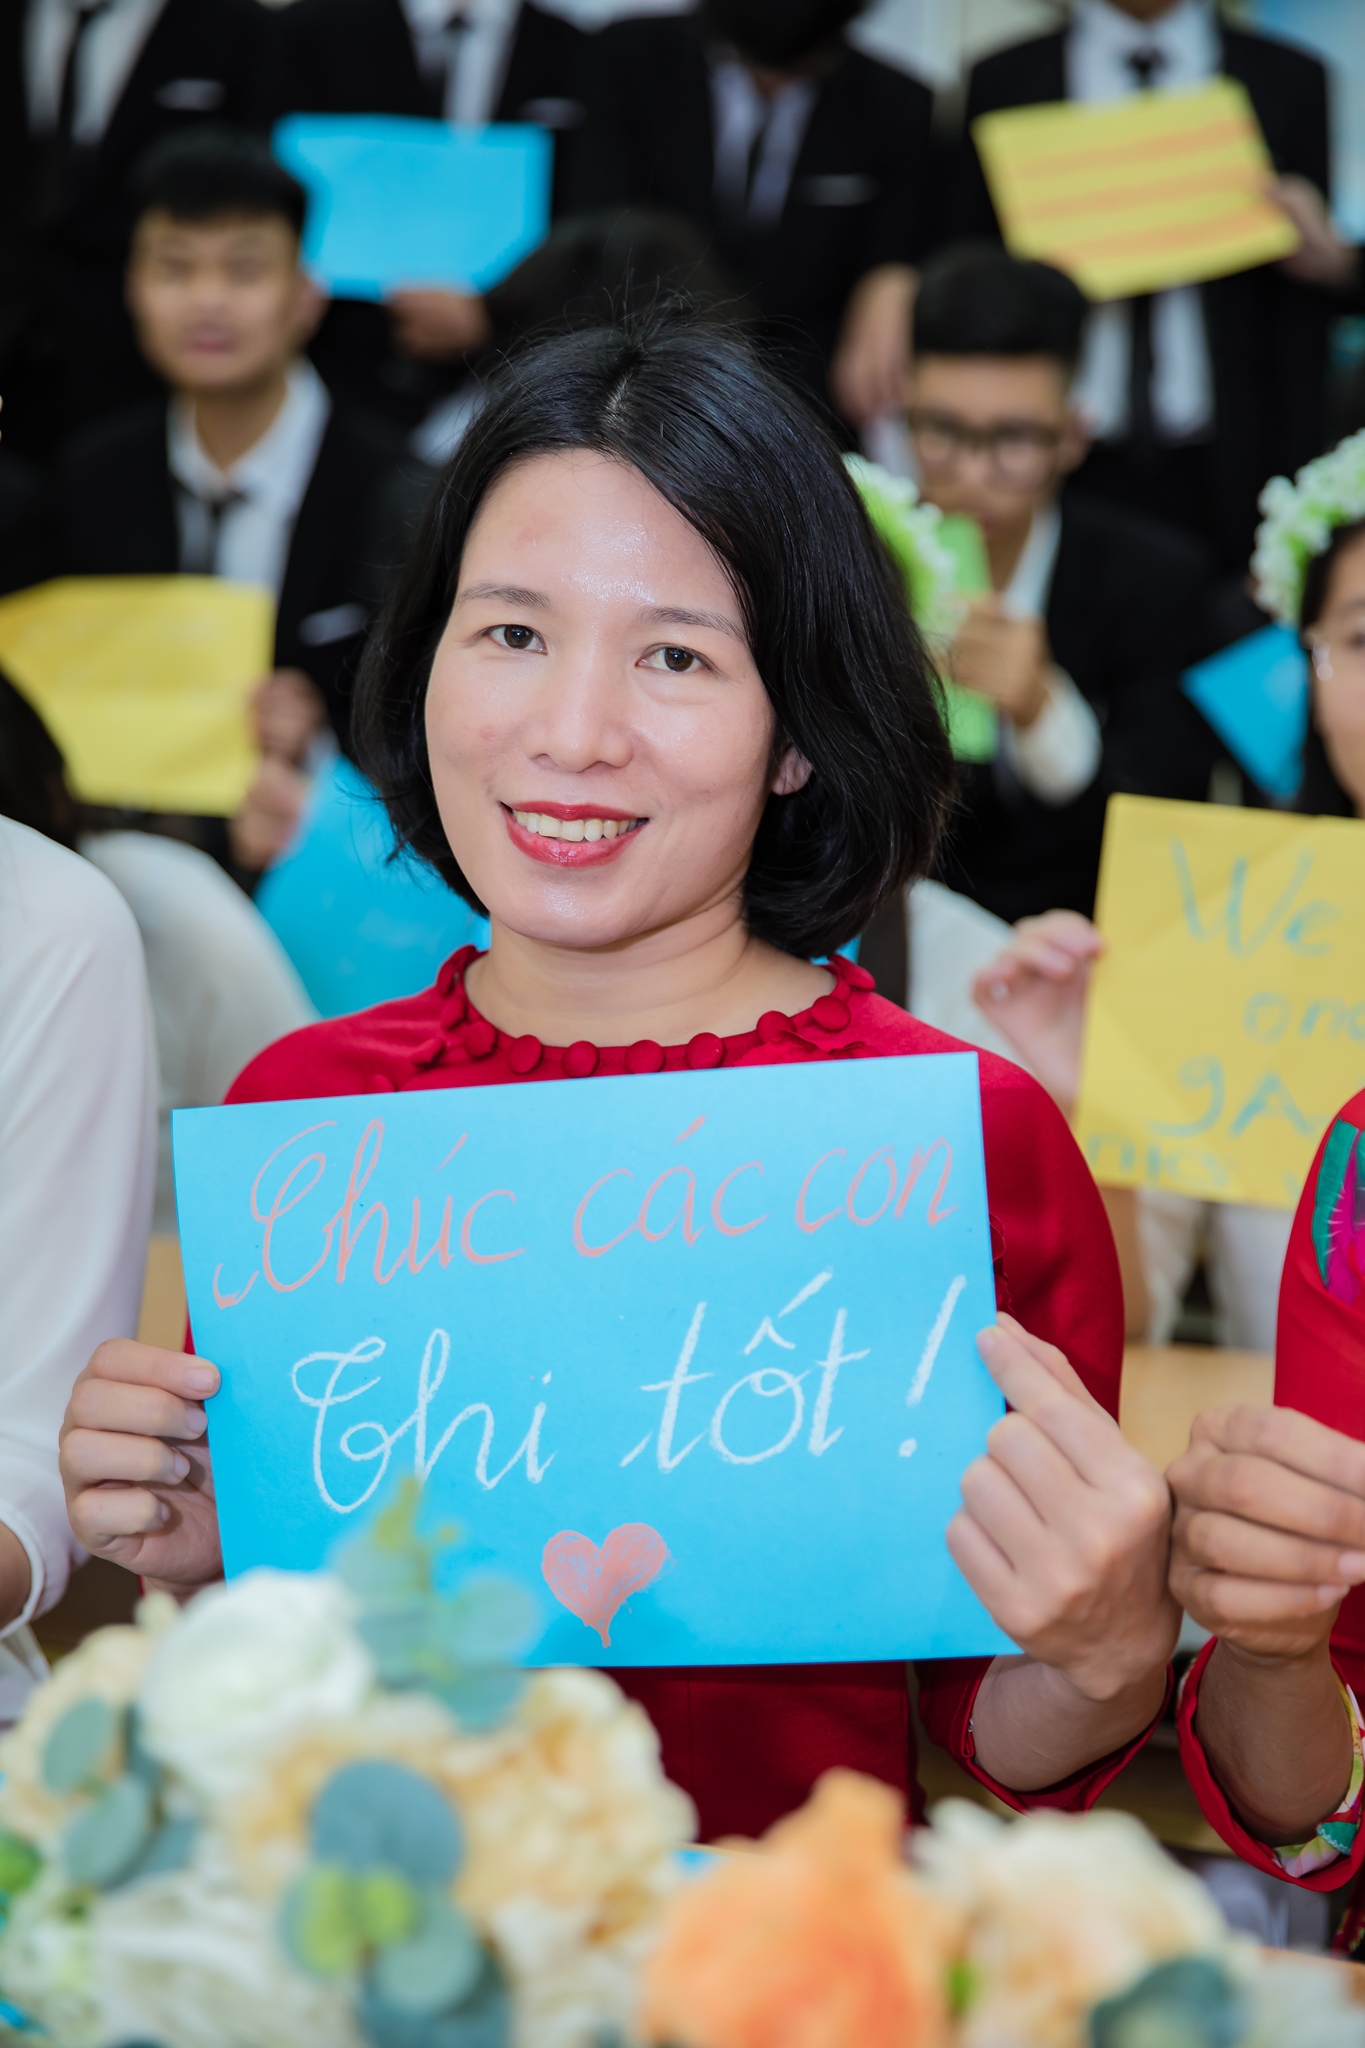 Chúc các con
Thi tốt!
We